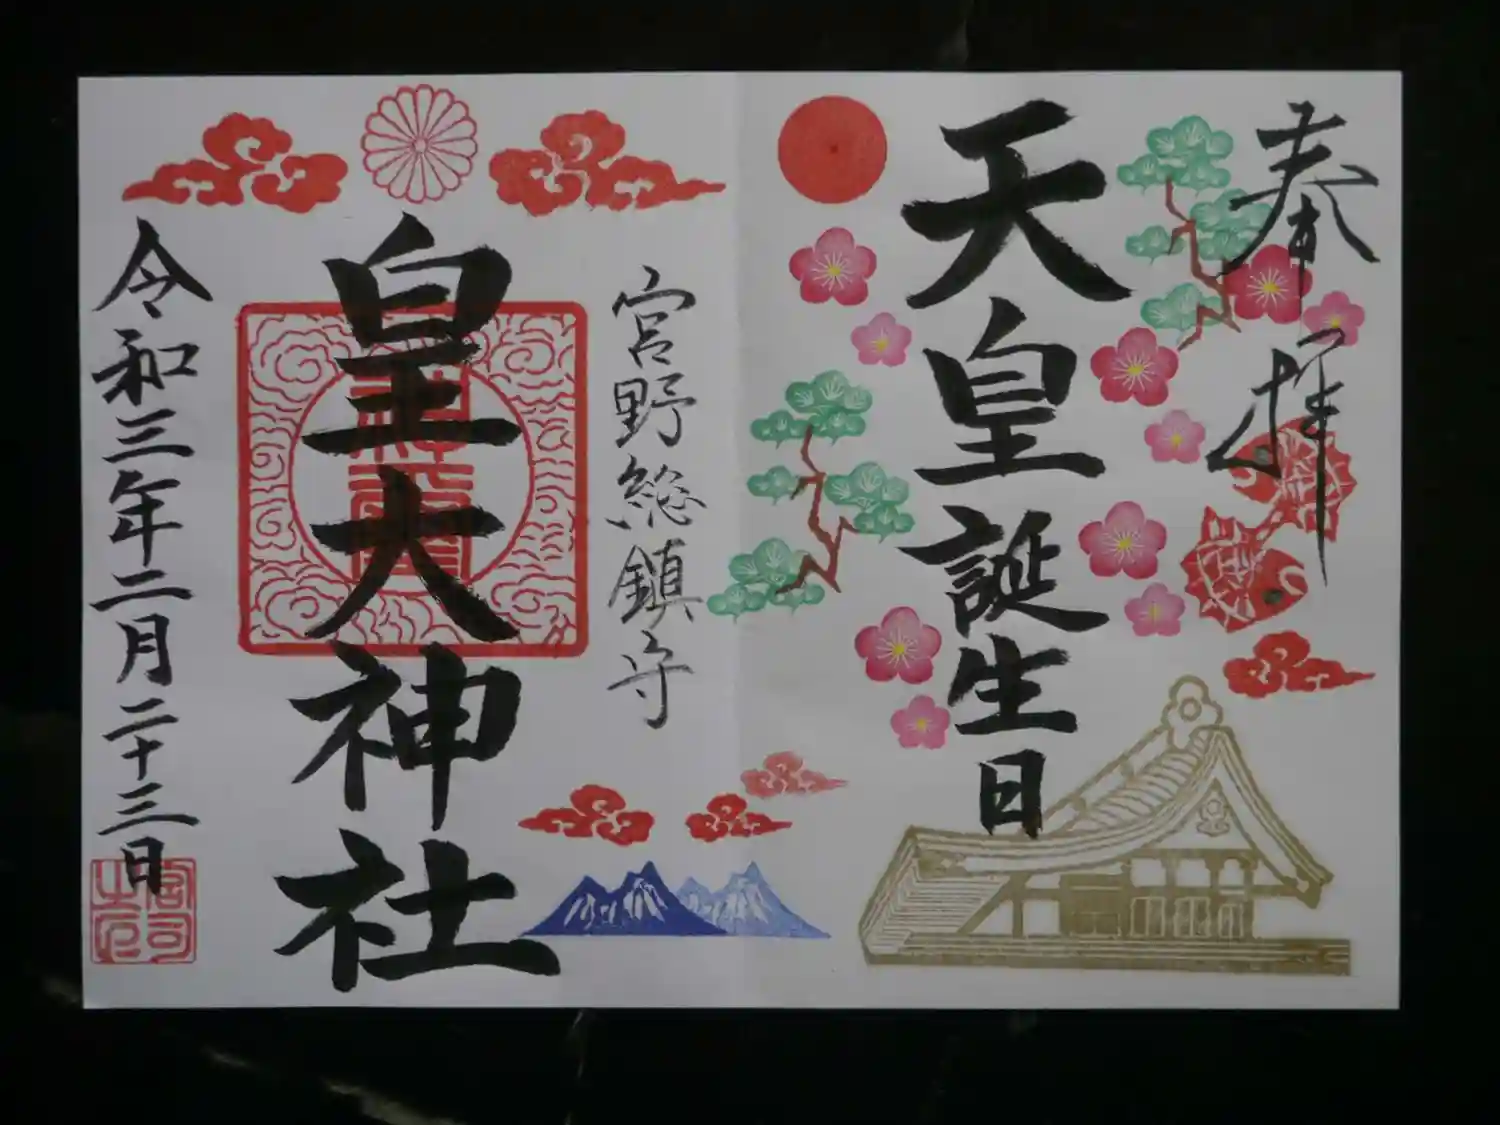 奉拝
天皇誕生日
宮野総鎮守
皇大神社
令和三年二月二十三日
宮司之印